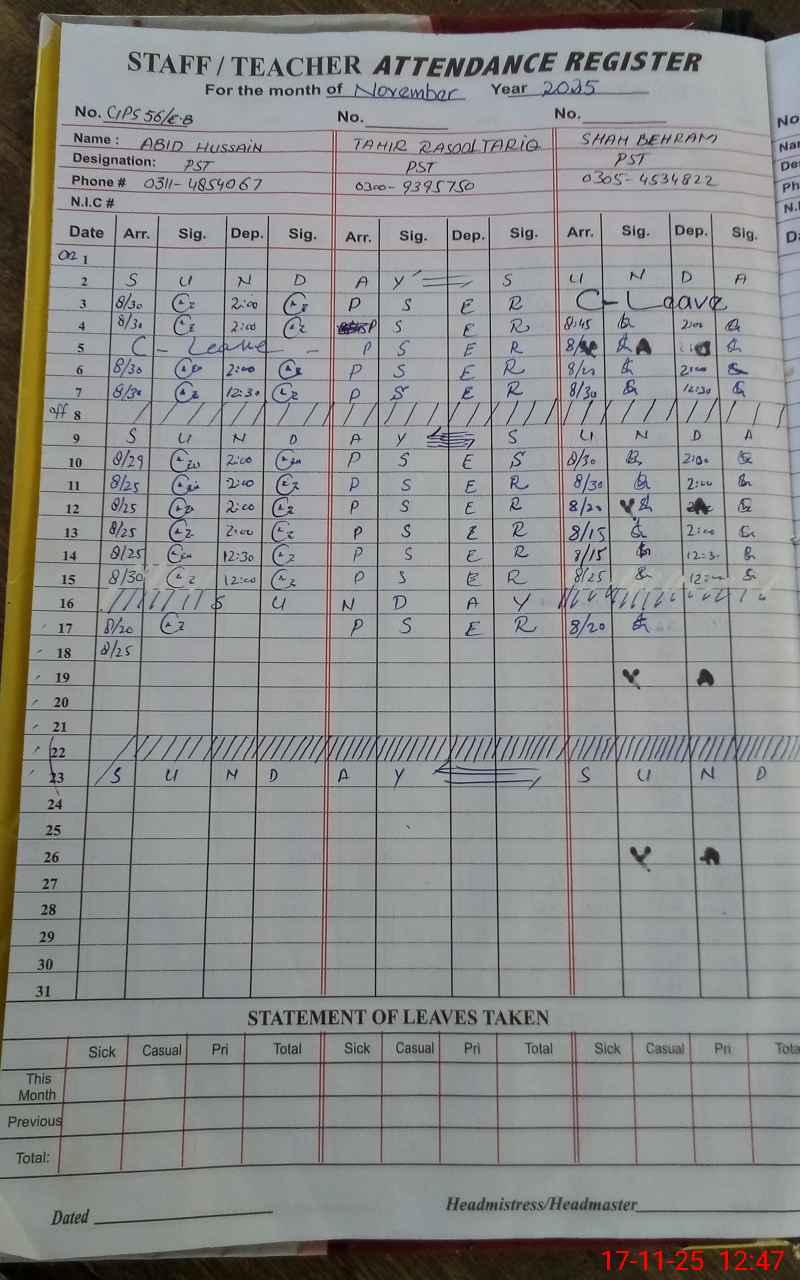 STAFF / TEACHER ATTENDANCE REGISTER
For the month of November Year 2025
No. No. No.
Name : ABID HUSSAIN TAHIR RASOOL TARIQ SHAH BEHRAM
Designation: PST PST PST
Phone # 0311-4854067 0300-9395750 0305-4534822
N.I.C #
Date Arr. Sig. Dep. Sig. Arr. Sig. Dep. Sig. Arr. Sig. Dep. Sig.
1
2 S U N D A Y S U N D A
3 8/30 2:00 P S E R C-Leave
4 8/30 2:00 P S E R 8:45 2:00
5 C-Leave - P S E R
6 8/30 2:00 P S E R 2:00
7 8/30 12:30 P S E R 8/30 12:30
off 8
9 S U N D A Y S U N D A
10 8/29 2:00 P S E S 8/30 2:00
11 8/25 2:00 P S E R 8/30 2:00
12 8/25 2:00 P S E R 8/20
13 8/25 2:00 P S E R 8/15 2:00
14 8/25 12:30 P S E R 8/15 12:30
15 8/30 12:00 P S E R 8/25 12:00
16 S U N D A Y
17 8/20 P S E R 8/20
18 8/25
19
20
21
22
23 S U N D A Y S U N D
24
25
26
27
28
29
30
31
STATEMENT OF LEAVES TAKEN
Sick Casual Pri Total Sick Casual Pri Total Sick Casual Pri Tota
This
Month
Previous
Total:
Dated Headmistress/Headmaster
17-11-25 12:47